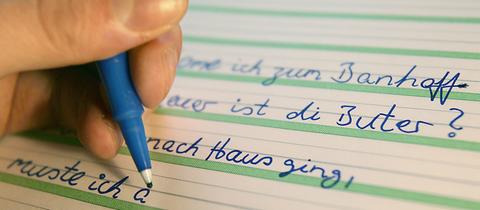 ome ich zum Banhoff
auer ist di Buter ?
nach Haus ging,
muste ich a